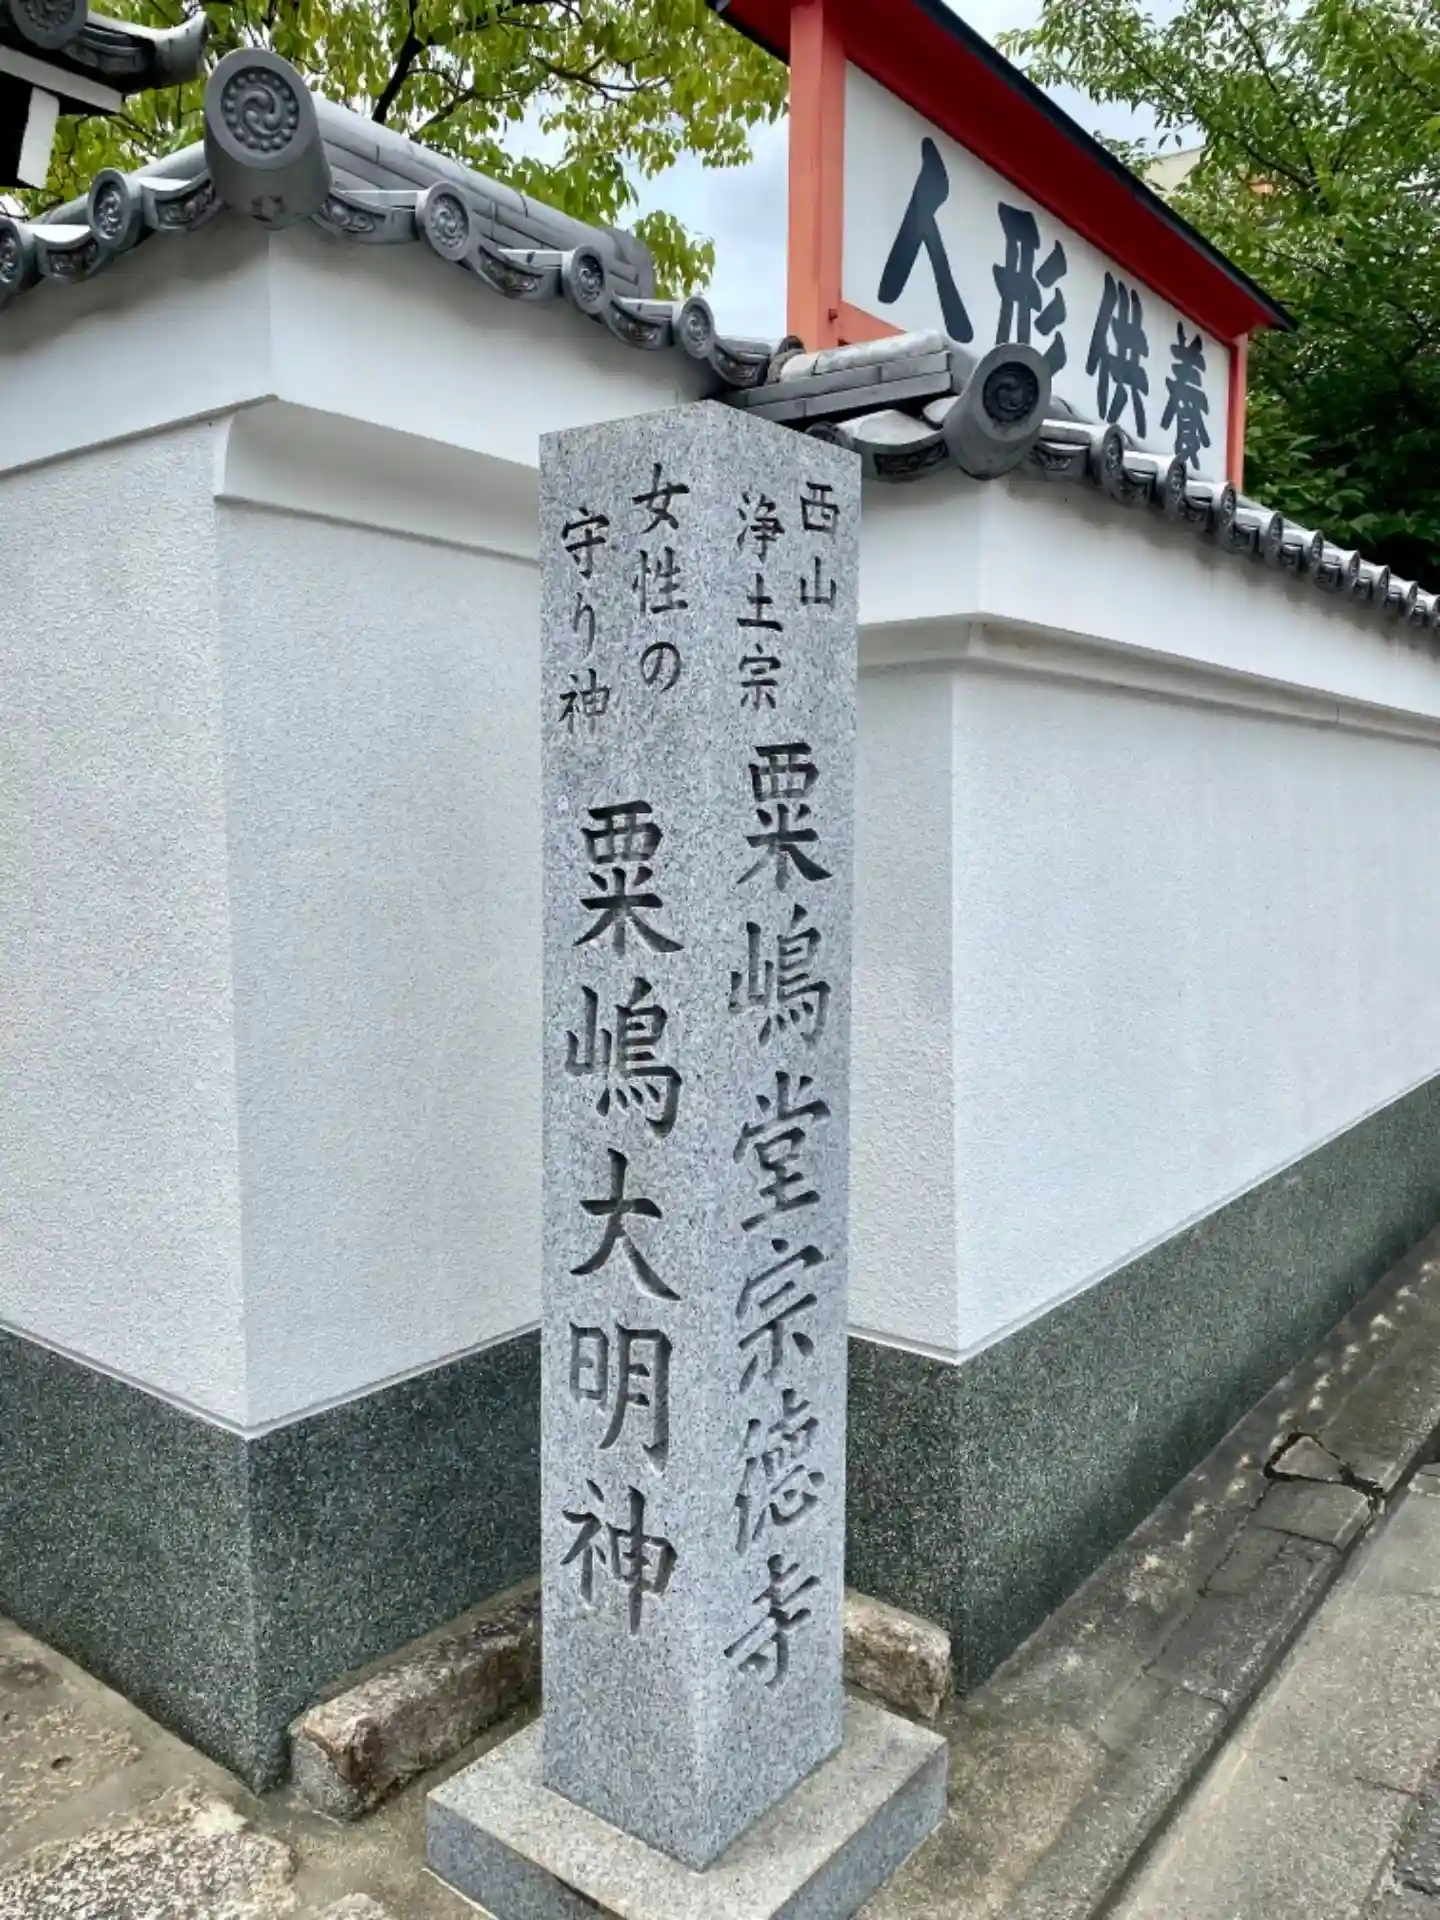 人形供養
西山
浄土宗
粟嶋堂宗徳寺
女性の
守り神
粟嶋大明神